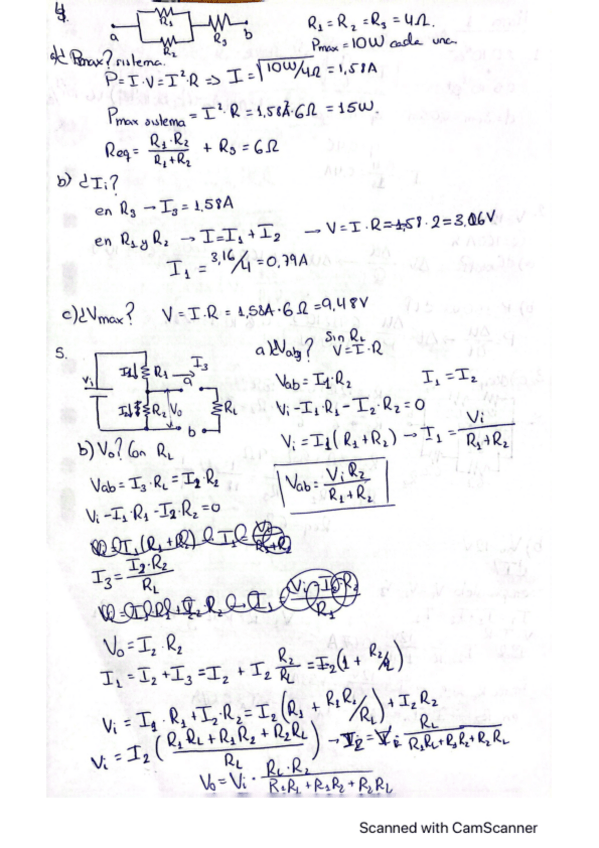 4.
R₁
R₂
a
R₃
b
R₁ = R₂ = R₃ = 4Ω.
Pmax = 10W cada una.
a)¿Pmax? sistema.
P = I·V = I²·R ⇒ I = √10W/4Ω = 1,58A
Pmax sistema = I²·R = 1,58²A·6Ω = 15W.
Req = R₁·R₂/R₁+R₂ + R₃ = 6Ω
b) ¿Ii?
en R₃ → I₃ = 1,58A
en R₁ y R₂ → I = I₁ + I₂ → V = I·R = 1,58·2 = 3,16V
I₁ = 3,16/4 = 0,79A
c)¿Vmax? V = I·R = 1,58A·6Ω = 9,48V
5.
Vi
I₁↓
R₁
I₃
a
I₂↓
R₂
V₀
RL
b
a)¿Vab? Sin RL
V = I·R
Vab = I₁·R₂ I₁ = I₂
Vi - I₁·R₁ - I₂·R₂ = 0
Vi = I₁(R₁+R₂) → I₁ = Vi/R₁+R₂
Vab = Vi R₂/R₁+R₂
b) V₀? Con RL
Vab = I₃·RL = I₂·R₂
Vi - I₁·R₁ - I₂·R₂ = 0
I₃ = I₂·R₂/RL
V₀ = I₂·R₂
I₁ = I₂ + I₃ = I₂ + I₂ R₂/RL = I₂(1 + R₂/RL)
Vi = I₁·R₁ + I₂·R₂ = I₂(R₁ + R₁R₂/RL) + I₂R₂
Vi = I₂(R₁RL + R₁R₂ + R₂RL/RL) → I₂ = Vi · RL/R₁RL+R₁R₂+R₂RL
V₀ = Vi · RL·R₂/R₁RL + R₁R₂ + R₂RL
Scanned with CamScanner